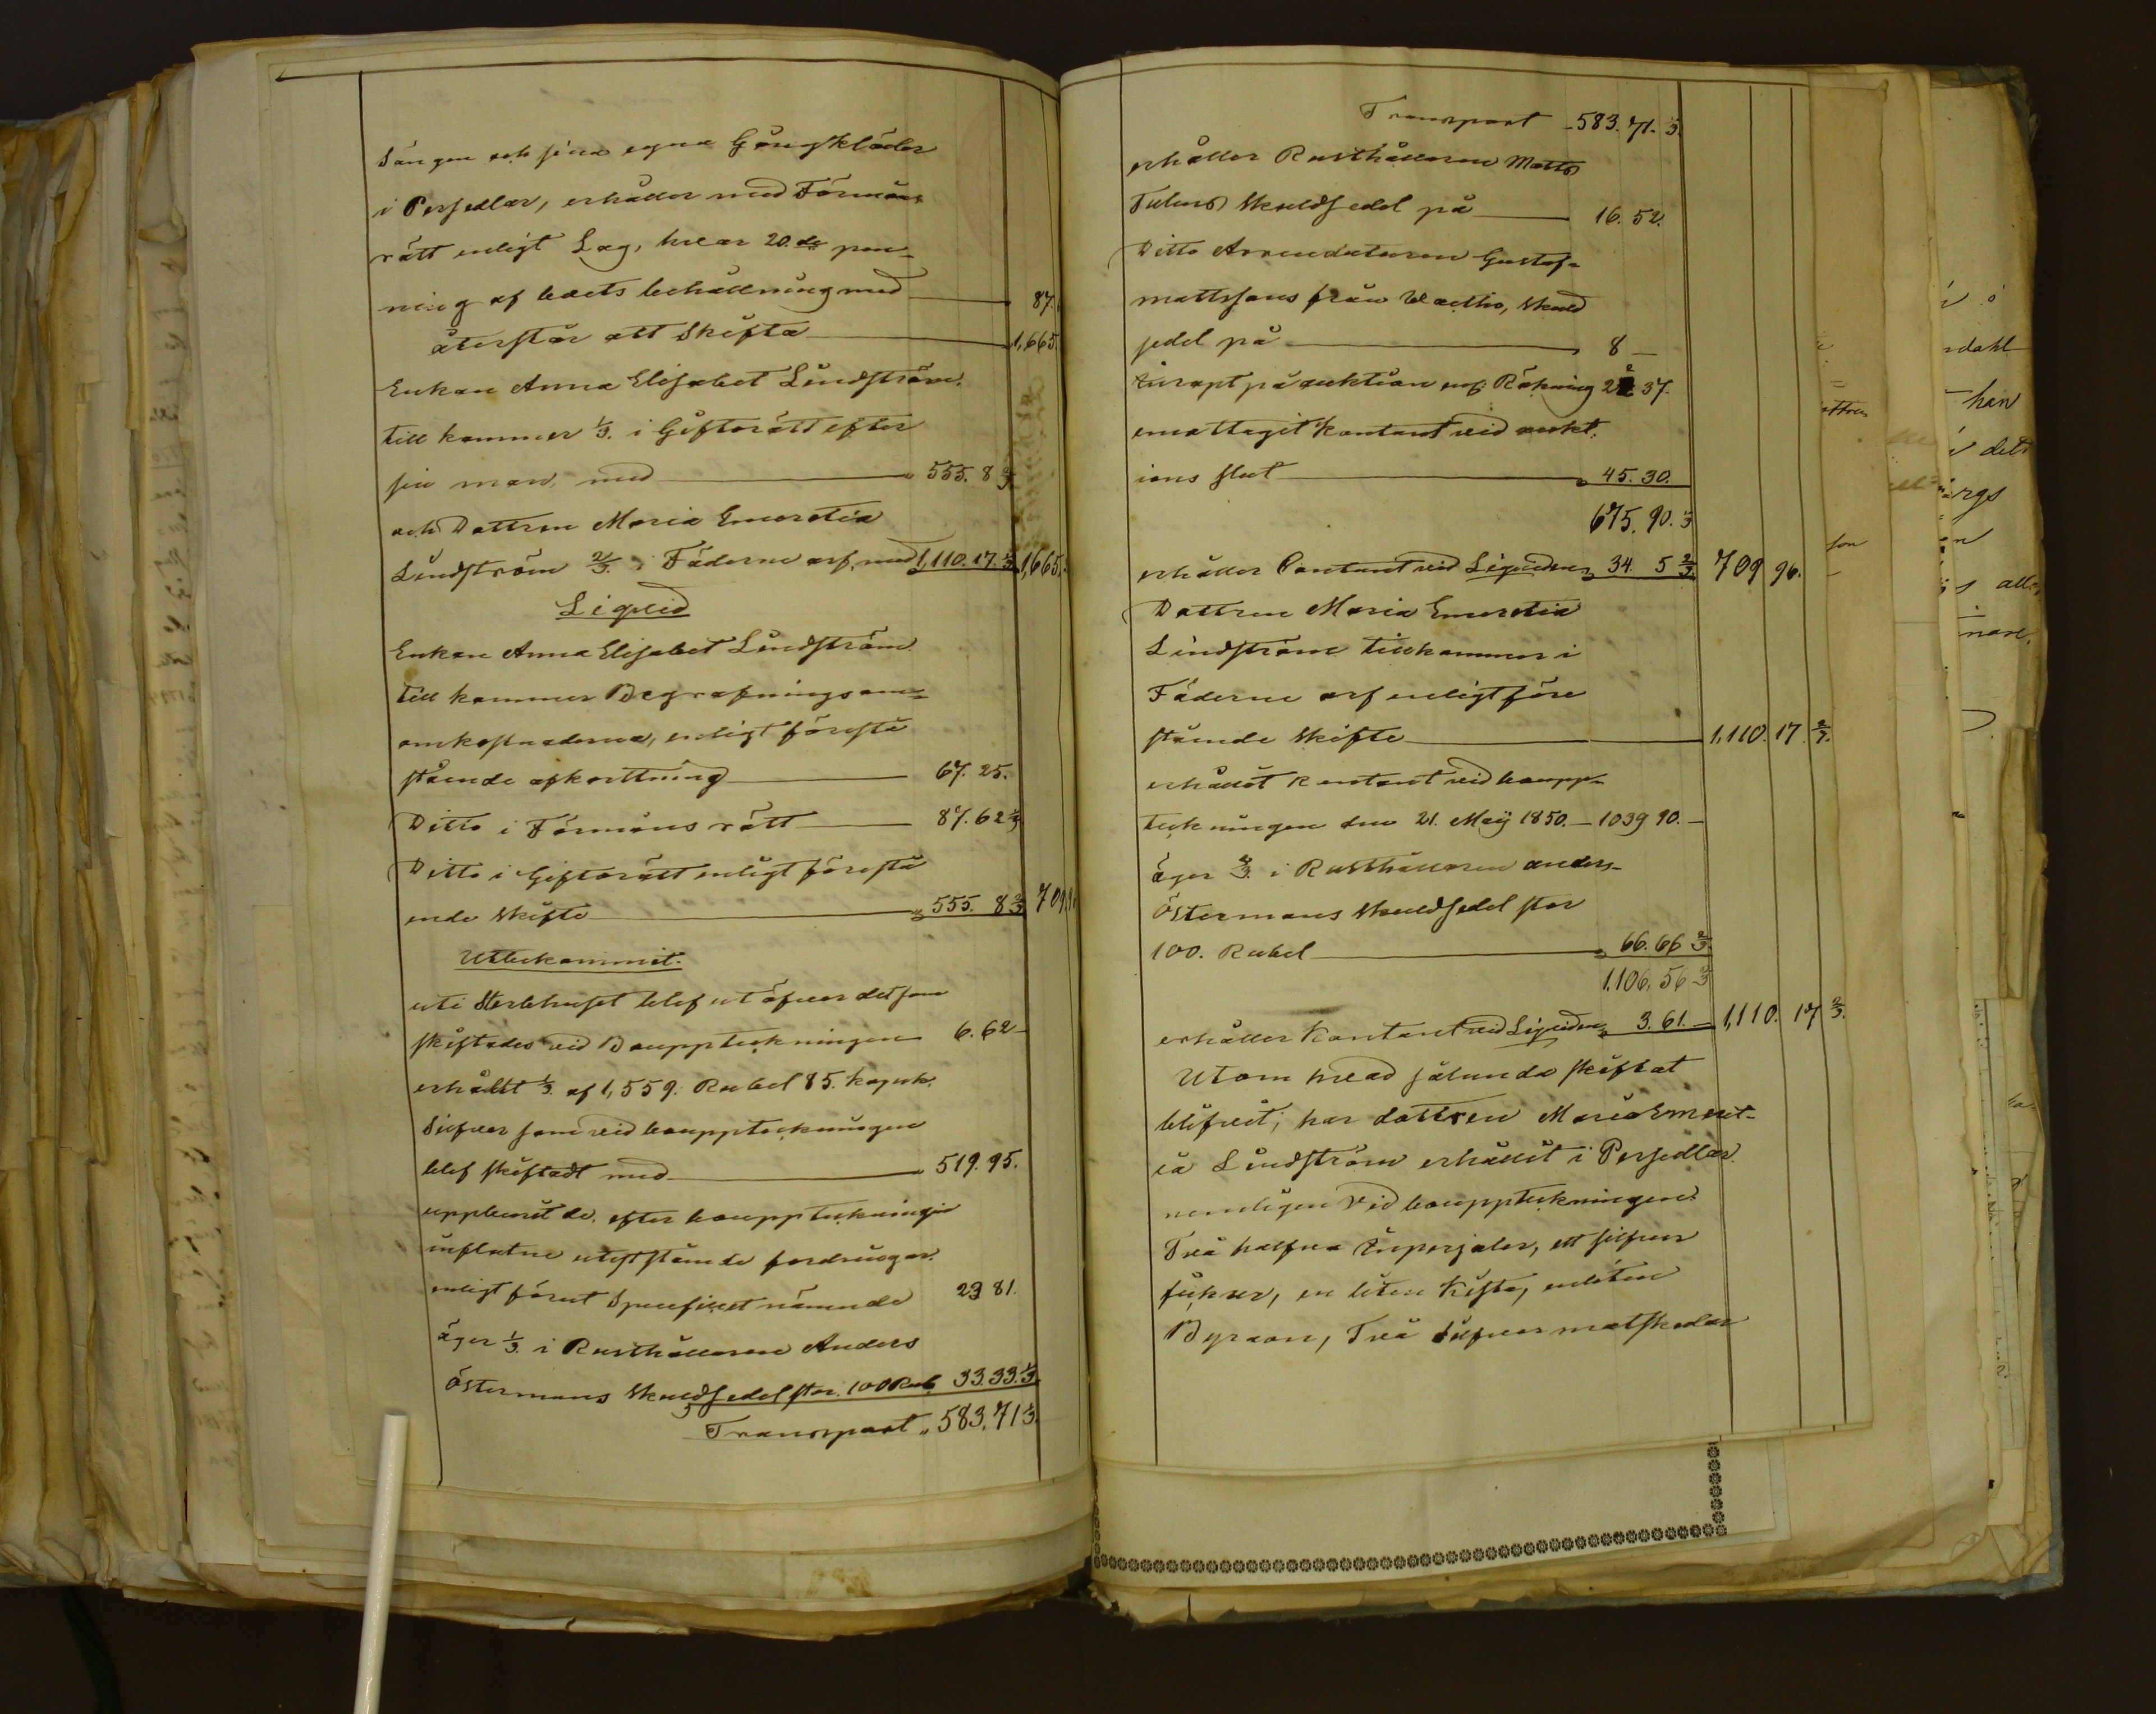 Sängen och sina egna Gångkläder
i Persedlar, erhåller med Förmåns
rätt enligt Lag, hvar 20.de pen-
ning af boets behållning med 87.
återstår att Skifta 1,665.
Enkan Anna Elisabet Lindström
till kommer 1/3. i Giftorätt efter
sin man, med 555. 8 2/3
och Dottren Maria Emerentia
Lindström 2/3. i Fäderne arf, med 1,110. 17. 1/3 1,665.
Liqvid
Enkan Anna Elisabet Lindström
till kommer Begrafnings om-
omkostnaderna, enligt förestå
stående afkorttning 67. 25.
Ditto i Förmåns rätt 87. 62 2/3
Ditto i Giftorätt enligt förestå
ende Skifte 555. 8 2/3 709.9
Utbekommit.
uti Sterbhuset blef ut öfver det som
skiftades vid Bouppteckningen 6. 62
erhållt 1/3. af 1,559. Rubel 85. kopek.
Silfver som vid bouppteckningen
blef skiftadt med 519. 95.
uppburit de. efter bouppteckningen
influtne utestående fordringar.
enligt förut Specificet nämnde 23 81.
äger 1/3. i Rusthållaren Anders
Östermans Skuldsedel stor. 100 Rub 33. 33. 1/3
Transport 583. 71 1/3.
Transport 583. 71. 1/3.
erhåller Rusthållaren Matts
Skuldsedel på 16. 52.
Ditto Arrendatoren Gustaf-
mattssons från skuld
sedel på 8 —
Inropt på auktion enl: Räkning 22 37.
emottagit kontant vid aukt.
ions slut 45. 30.
675. 90. 1/3
erhåller Contant vid Liqviden 34. 5 2/3 709 96.
Dottren Maria Emerentia
Lindström tillkommer i
Fäderne arf enligt före
stående Skifte 1,110. 17. 2/3.
erhållit kontant vid boupp-
teckningen den 21. Maij 1850. — 1039 90. —
äger 2/3. i Rusthållaren anders
Östermans Skuldsedel stor
100. Rubel 66. 66 2/3.
1,106. 56 2/3
erhåller Kontant vid Liqviden 3. 61. — 1,110. 17 2/3.
Utom hvad sålunda skiftat
blifvit, har dottren Maria Emerent-
ia Lindström erhållit i Persedlar
nemligen vid bouppteckningen
Två halfva Imperjaler, ett silfver
en liten Kista, en liten
Byraon, Två Silfver matskedar